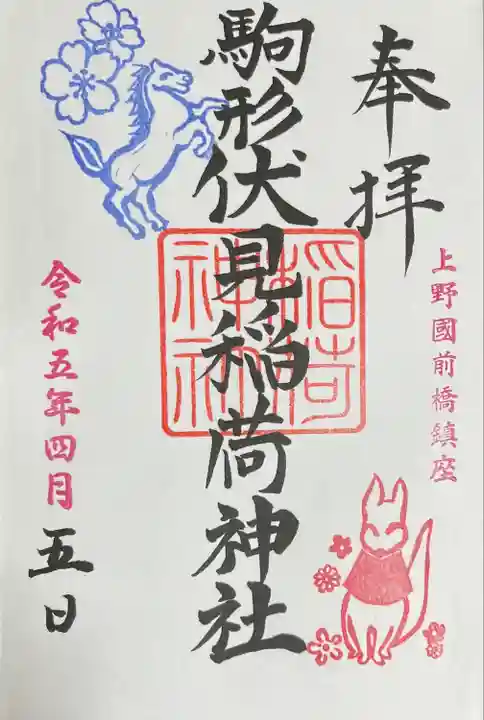 奉拝
上野國前橋鎮座
駒形伏見稲荷神社
稲荷神社
令和五年四月五日